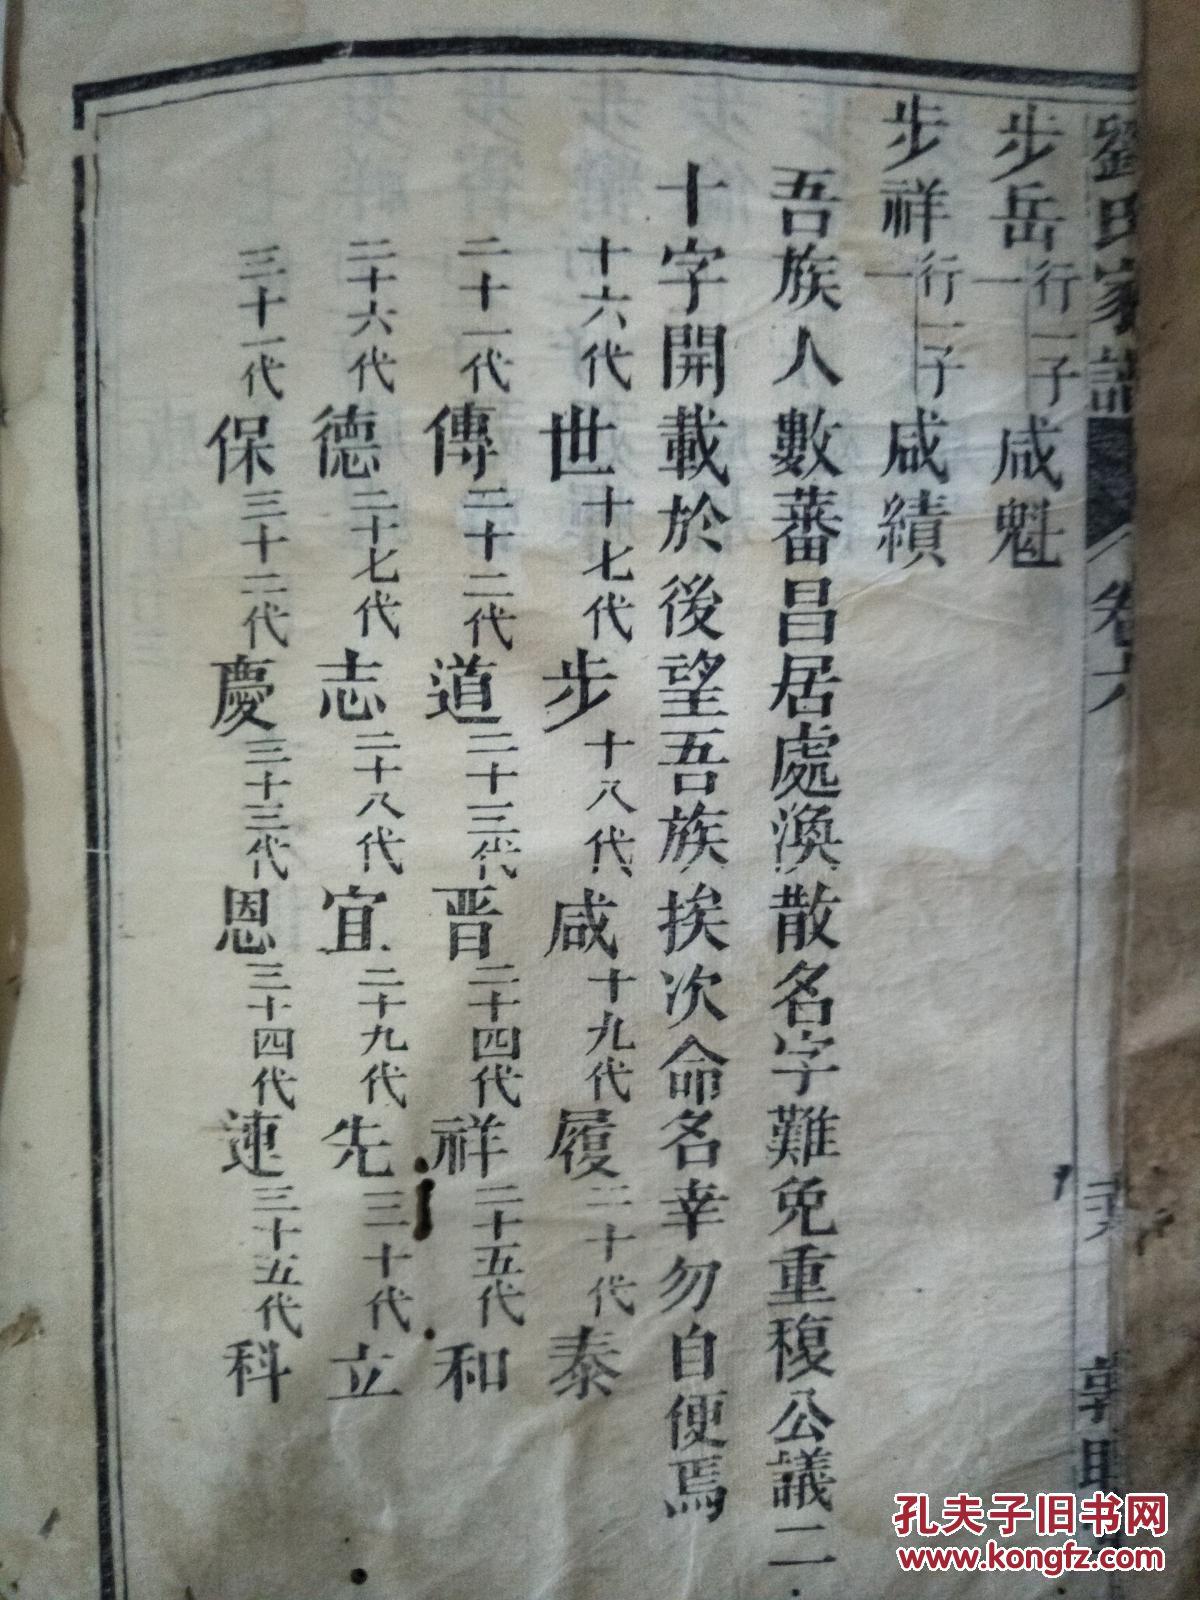 劉氏家譜 卷六
步岳 行一 子一 咸魁
步祥 行一 子一 咸績
吾族人數蕃昌居處渙散名字難免重複公議二
十字開載於後望吾族挨次命名幸勿自便焉
十六代世十七代步十八代咸十九代履二十代泰
二十一代傳二十二代道二十三代晋二十四代祥二十五代和
二十六代德二十七代志二十八代宜二十九代先三十代立
三十一代保三十二代慶三十三代恩三十四代連三十五代科
孔夫子旧书网
www.kongfz.com